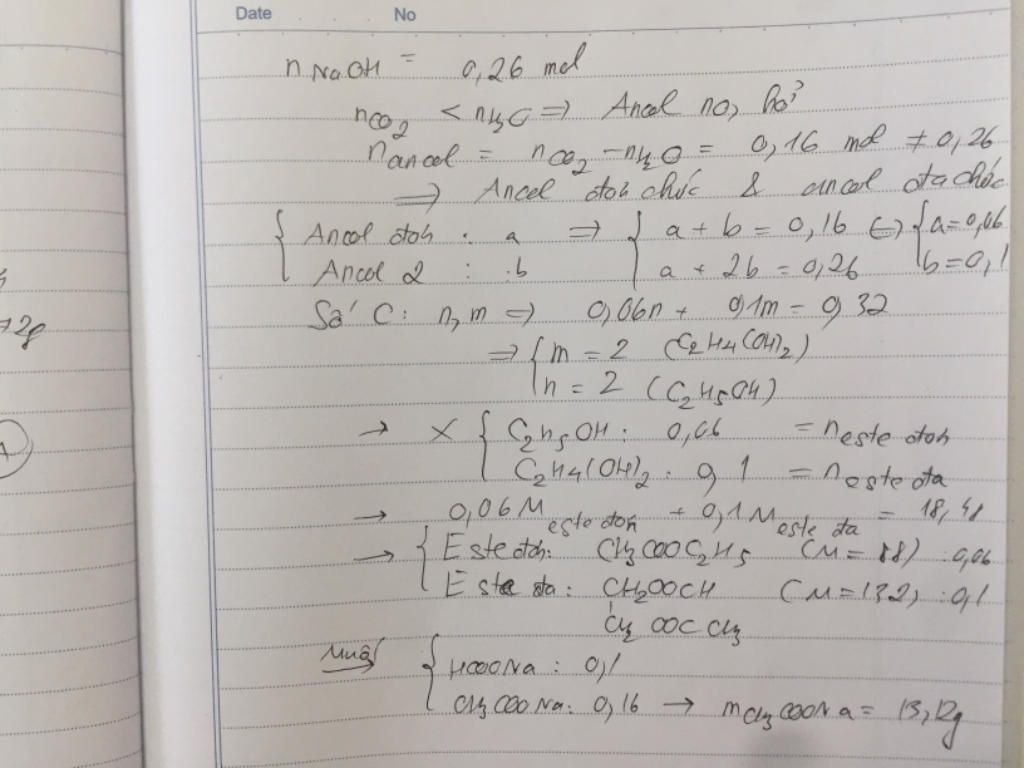 Date No
n NaOH = 0,26 mol
nCO2 < nH2O => Ancol no, hở
nancol = nCO2 - nH2O = 0,16 mol ≠ 0,26
=> Ancol đơn chức & ancol đa chức
{ Ancol đơn : a => { a + b = 0,16 <=> { a = 0,06
Ancol 2 : b a + 2b = 0,26 b = 0,1
Số C: n, m => 0,06n + 0,1m = 0,32
=> { m = 2 (C2H4(OH)2)
n = 2 (C2H5OH)
→ X { C2H5OH : 0,06 = neste đơn
C2H4(OH)2 : 0,1 = neste đa
→ 0,06 Meste đơn + 0,1 Meste đa = 18,48
→ { Este đơn: CH3COOC2H5 (M = 88) : 0,06
Este đa: CH2OOCH (M = 132) : 0,1
CH2 OOC CH3
Muối { HCOONa : 0,1
CH3COONa : 0,16 → mCH3COONa = 13,12g